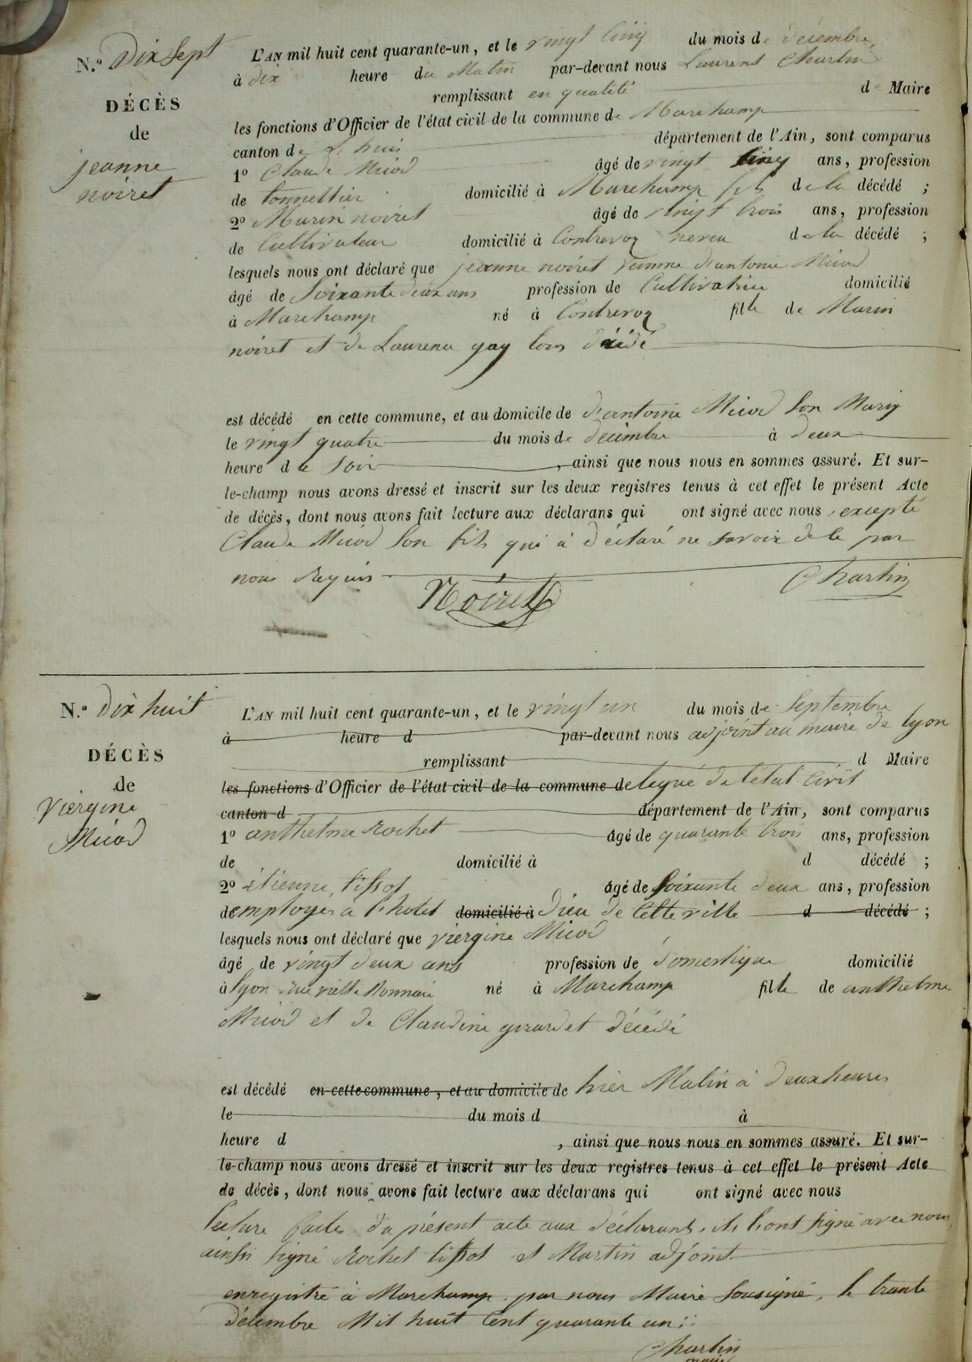 N.º Dix Sept
DÉCÈS
de
jeanne
noiret
L'AN mil huit cent quarante-un, et le vingt cinq du mois de décembre
à dix heure du Matin par-devant nous Laurent Charlin
remplissant en qualité de Maire
les fonctions d'Officier de l'état civil de la commune de Marchamp
canton de L'huis département de l'Ain, sont comparus
1º Claude Micod âgé de vingt cinq ans, profession
de tonnellier domicilié à Marchamp fils de la décédé ;
2º Marin noiret âgé de vingt trois ans, profession
de Cultivateur domicilié à Contrevoz neveu de la décédé ;
lesquels nous ont déclaré que jeanne noiret femme d'antoine Micod
âgé de Soixante deux ans profession de Cultivatrice domicilié
à Marchamp né à Contrevoz fille de Marin
noiret et de Laurence gay tous décédé
est décédé en cette commune, et au domicile de d'antoine Micod Son Mary
le vingt quatre du mois de décembre à deux
heure de Soir, ainsi que nous nous en sommes assuré. Et sur-
le-champ nous avons dressé et inscrit sur les deux registres tenus à cet effet le présent Acte
de décès, dont nous avons fait lecture aux déclarans qui ont signé avec nous, excepté
Claude Micod Son fils qui à déclaré ne savoir de le par
nous Requis
Noiret Charlin
N.º dix huit
DÉCÈS
de
viergine
Micod
L'AN mil huit cent quarante-un, et le vingt un du mois de Septembre
à heure d par-devant nous adjoint au maire de lyon
remplissant d Maire
les fonctions d'Officier de l'état civil de la commune de legué de l'état civil
canton d département de l'Ain, sont comparus
1º anthelme Rochet âgé de quarante trois ans, profession
de domicilié à d décédé ;
2º étienne tissot âgé de Soixante deux ans, profession
de employés à l'hotel domicilié à Dieu de Cette ville d décédé ;
lesquels nous ont déclaré que viergine Micod
âgé de vingt deux ans profession de domestique domicilié
à lyon rue vielle Monnaie né à Marchamp fille de anthelme
Micod et de Claudine girardet décédé
est décédé en cette commune, et au domicile de hier Matin à deux heures
le du mois d à
heure d , ainsi que nous nous en sommes assuré. Et sur-
le-champ nous avons dressé et inscrit sur les deux registres tenus à cet effet le présent Acte
de décès, dont nous avons fait lecture aux déclarans qui ont signé avec nous
lecture faite du présent acte aux déclarants, ils l'ont signé avec nous
ainsi signé Rochet tissot et Martin adjoint
enregistré à Marchamp par nous Maire Sousigné, le trante
Décembre Mil huit Cent quarante un ;
Charlin
maire